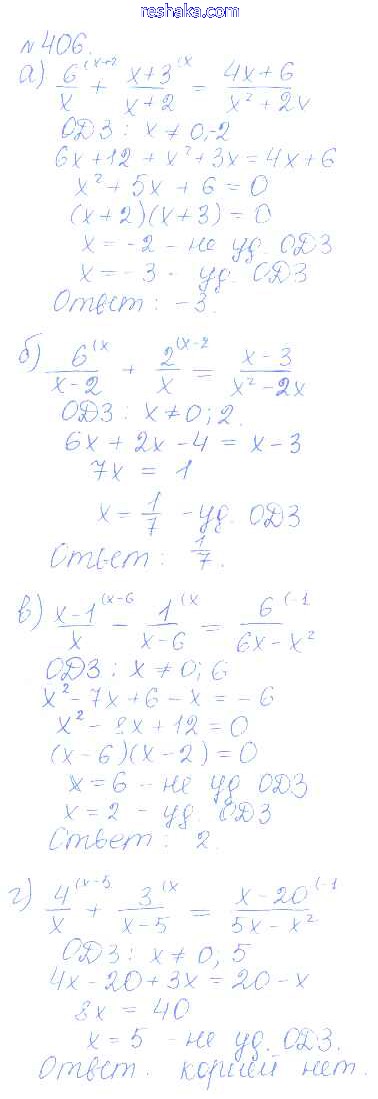 reshaka.com
№406.
а) 6^(x+2 / x + x+3^(x / x+2 = 4x+6 / x²+2x
ОДЗ: x ≠ 0,-2
6x+12 + x²+3x = 4x+6
x²+5x+6 = 0
(x+2)(x+3) = 0
x = -2 - не уд. ОДЗ
x = -3 - уд. ОДЗ
Ответ: -3.
б) 6^(x / x-2 + 2^(x-2 / x = x-3 / x²-2x
ОДЗ: x ≠ 0; 2.
6x + 2x - 4 = x-3
7x = 1
x = 1/7 - уд. ОДЗ
Ответ: 1/7.
в) x-1^(x-6 / x - 1^(x / x-6 = 6^(-1 / 6x-x²
ОДЗ: x ≠ 0; 6
x²-7x+6-x = -6
x²-8x+12=0
(x-6)(x-2)=0
x=6 - не уд ОДЗ
x=2 - уд. ОДЗ
Ответ: 2.
г) 4^(x-5 / x + 3^(x / x-5 = x-20^(-1 / 5x-x²
ОДЗ: x ≠ 0, 5
4x-20+3x=20-x
8x = 40
x=5 - не уд. ОДЗ.
Ответ. корней нет.